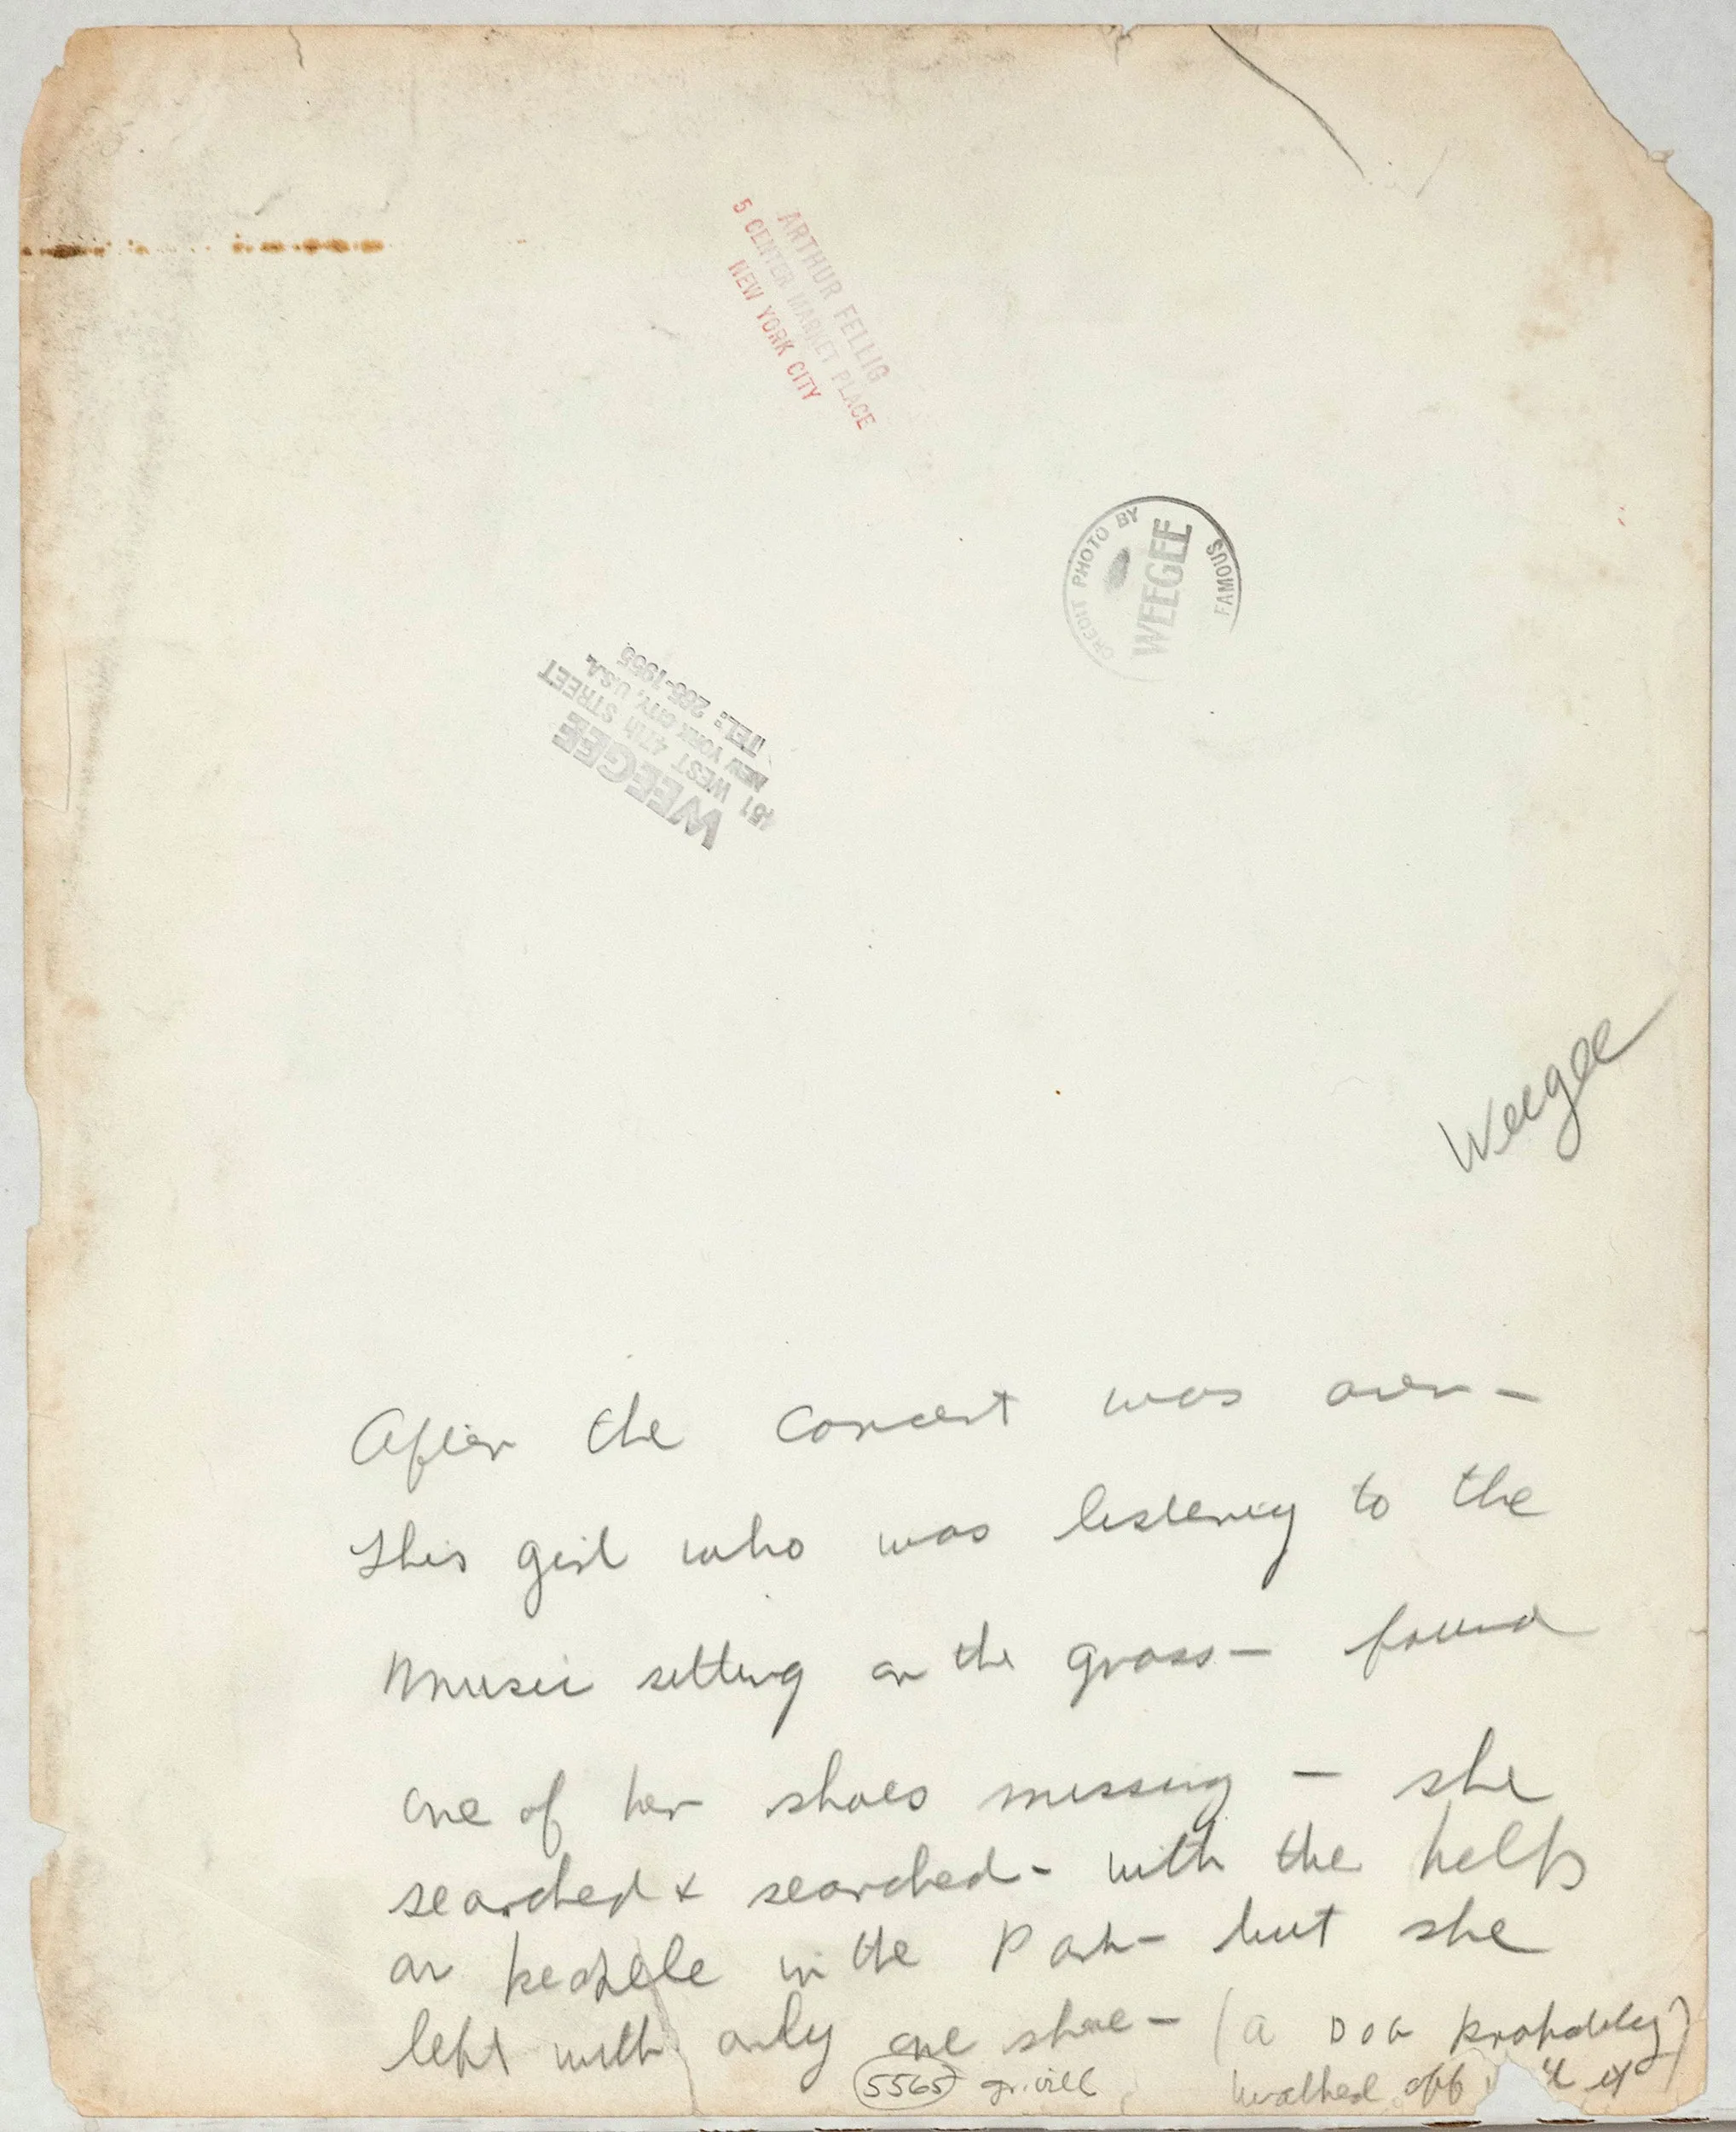 ARTHUR FELLIG
5 CENTER MARKET PLACE
NEW YORK CITY
CREDIT PHOTO BY
WEEGEE
FAMOUS
WEEGEE
451 WEST 47th STREET
NEW YORK CITY, U.S.A.
TEL: 265-1955
Weegee
After the concert was over—
This girl who was listening to the
Music sitting on the grass— found
one of her shoes missing — she
searched & searched— with the help
or people in the Park— but she
left with only one shoe— (a Dog probably)
walked off it
5565 gr. vill